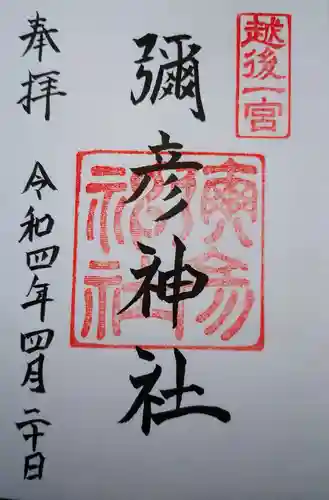 越後一宮
彌彦神社
奉拝
令和四年四月二十日